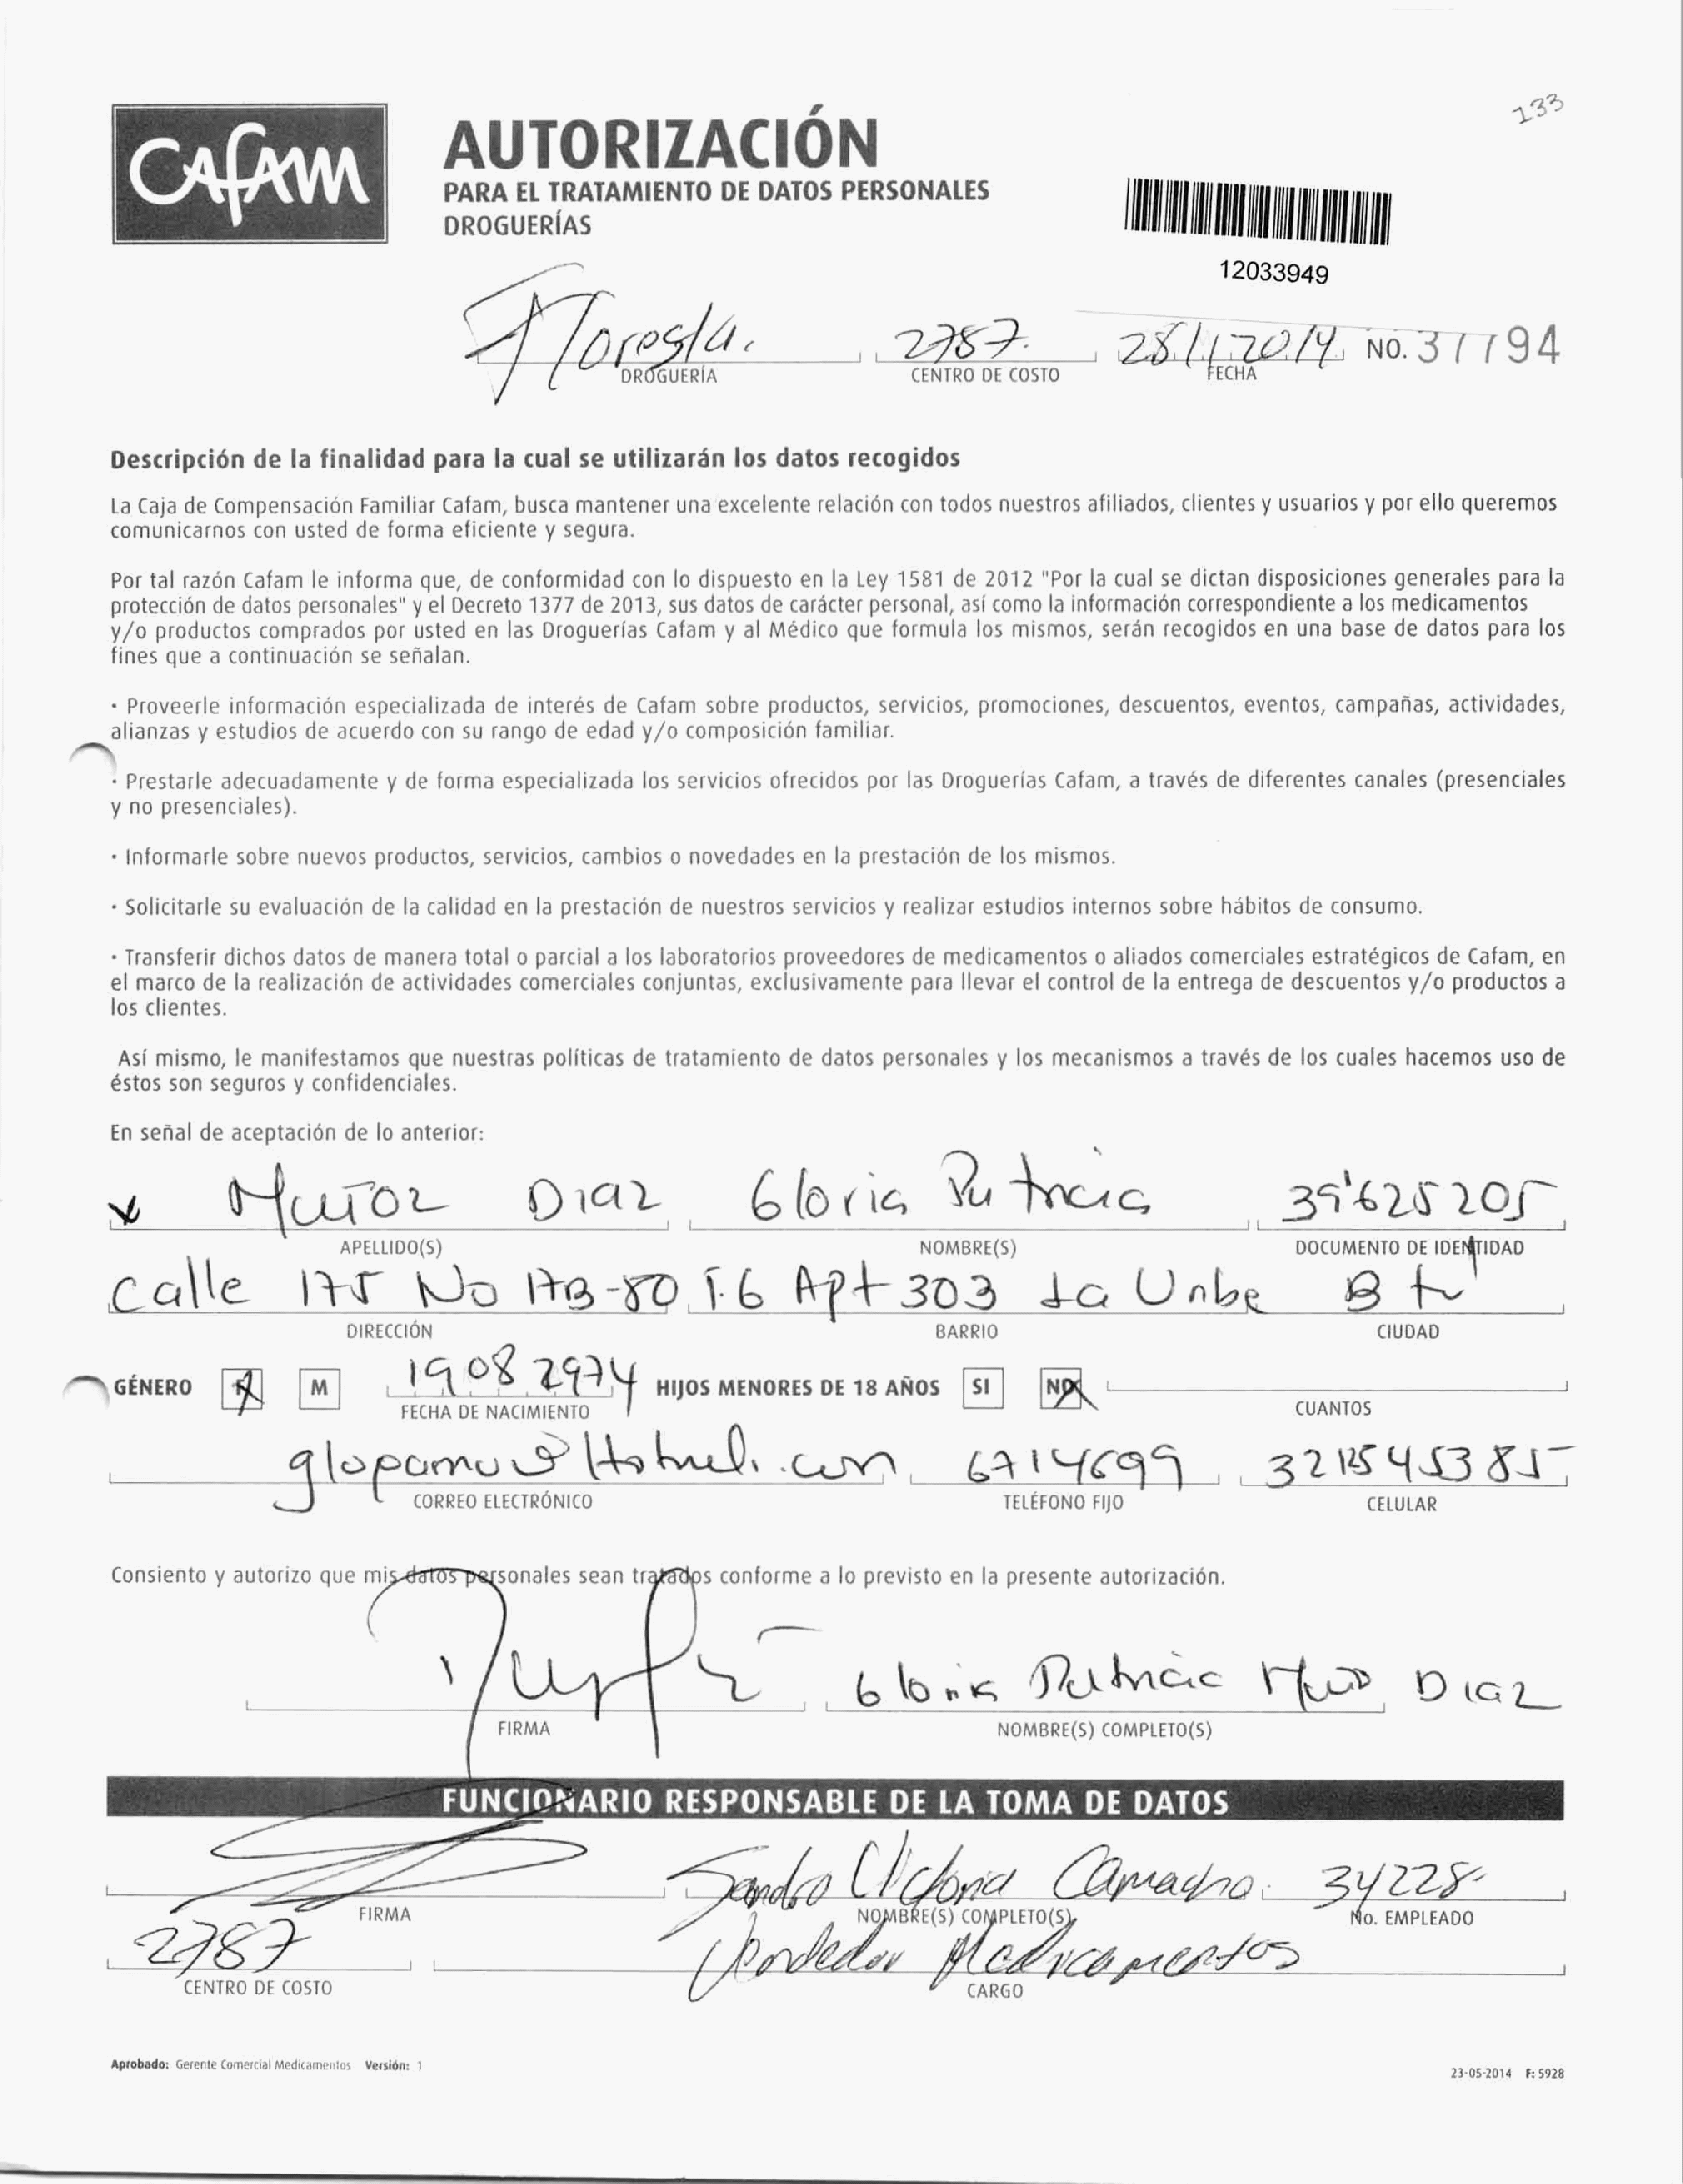 133
CAFAM
AUTORIZACIÓN
PARA EL TRATAMIENTO DE DATOS PERSONALES
DROGUERÍAS
12033949
Floresta. 2787. 28/1/2014 NO. 31194
DROGUERÍA CENTRO DE COSTO FECHA
Descripción de la finalidad para la cual se utilizarán los datos recogidos
La Caja de Compensación Familiar Cafam, busca mantener una excelente relación con todos nuestros afiliados, clientes y usuarios y por ello queremos
comunicarnos con usted de forma eficiente y segura.
Por tal razón Cafam le informa que, de conformidad con lo dispuesto en la Ley 1581 de 2012 "Por la cual se dictan disposiciones generales para la
protección de datos personales" y el Decreto 1377 de 2013, sus datos de carácter personal, así como la información correspondiente a los medicamentos
y/o productos comprados por usted en las Droguerías Cafam y al Médico que formula los mismos, serán recogidos en una base de datos para los
fines que a continuación se señalan.
· Proveerle información especializada de interés de Cafam sobre productos, servicios, promociones, descuentos, eventos, campañas, actividades,
alianzas y estudios de acuerdo con su rango de edad y/o composición familiar.
· Prestarle adecuadamente y de forma especializada los servicios ofrecidos por las Droguerías Cafam, a través de diferentes canales (presenciales
y no presenciales).
· Informarle sobre nuevos productos, servicios, cambios o novedades en la prestación de los mismos.
· Solicitarle su evaluación de la calidad en la prestación de nuestros servicios y realizar estudios internos sobre hábitos de consumo.
· Transferir dichos datos de manera total o parcial a los laboratorios proveedores de medicamentos o aliados comerciales estratégicos de Cafam, en
el marco de la realización de actividades comerciales conjuntas, exclusivamente para llevar el control de la entrega de descuentos y/o productos a
los clientes.
Así mismo, le manifestamos que nuestras políticas de tratamiento de datos personales y los mecanismos a través de los cuales hacemos uso de
éstos son seguros y confidenciales.
En señal de aceptación de lo anterior:
x Muñoz Diaz Gloria Patricia 39'625205
APELLIDO(S) NOMBRE(S) DOCUMENTO DE IDENTIDAD
Calle 175 No 17B-80 T.6 Apt 303 La Uribe Bt
DIRECCIÓN BARRIO CIUDAD
GÉNERO F M 19082974 HIJOS MENORES DE 18 AÑOS SI NO
FECHA DE NACIMIENTO CUANTOS
6714699 3212545385
CORREO ELECTRÓNICO TELÉFONO FIJO CELULAR
Consiento y autorizo que mis datos personales sean tratados conforme a lo previsto en la presente autorización.
Gloria Patricia Muñoz Diaz
FIRMA NOMBRE(S) COMPLETO(S)
FUNCIONARIO RESPONSABLE DE LA TOMA DE DATOS
Sandra Victoria Camacho. 34228
FIRMA NOMBRE(S) COMPLETO(S) No. EMPLEADO
2787 Vendedor Medicamentos
CENTRO DE COSTO CARGO
Aprobado: Gerente Comercial Medicamentos Versión: 1
23-05-2014 F: 5928